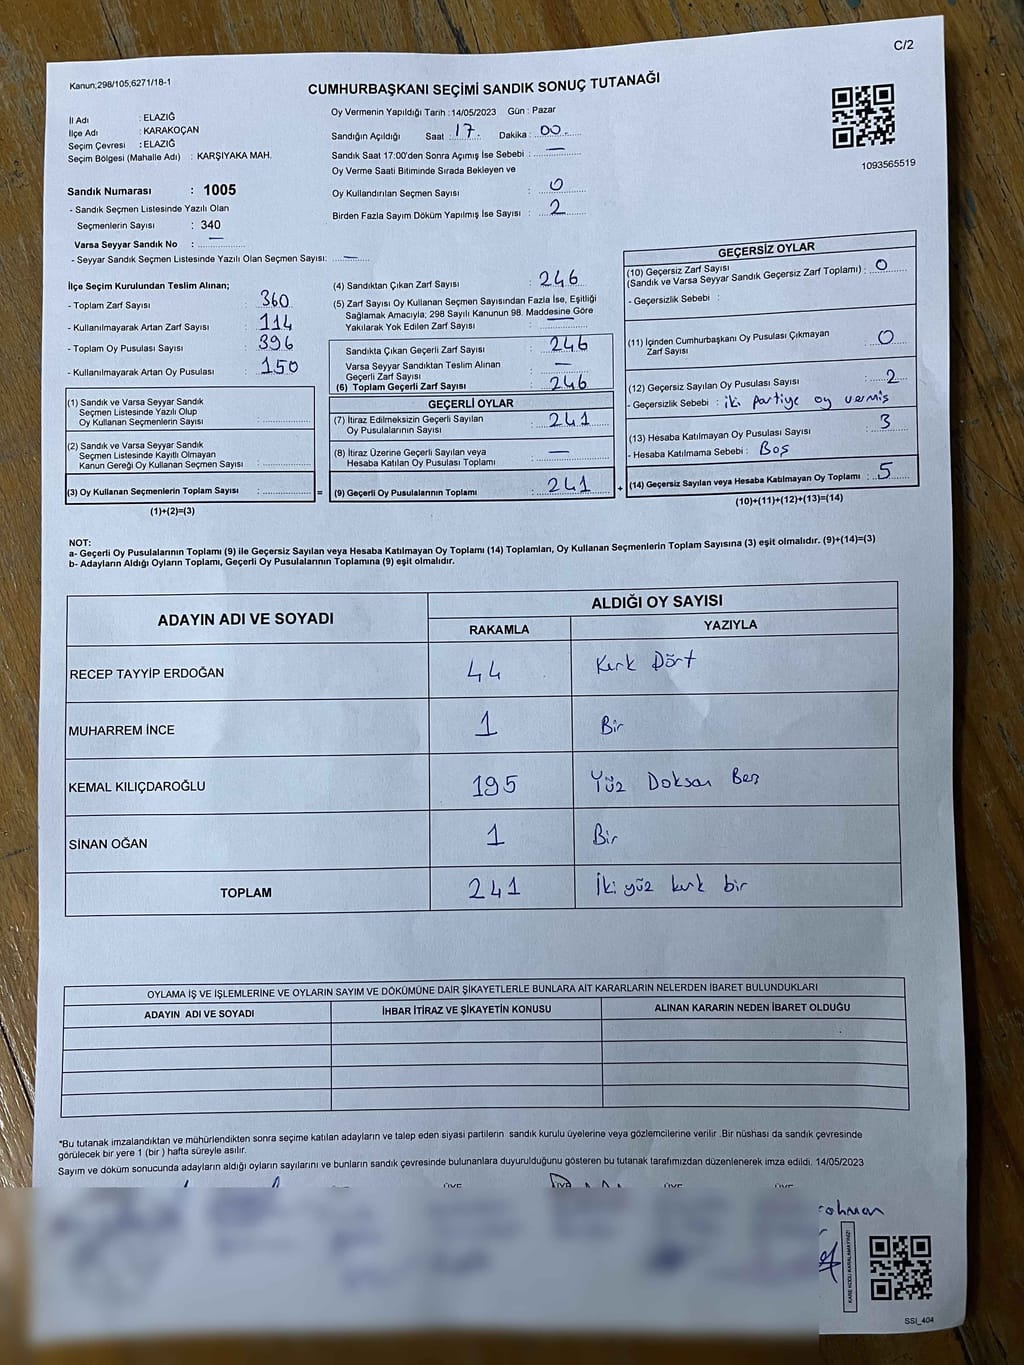 C/2
Kanun;298/105,6271/18-1
CUMHURBAŞKANI SEÇİMİ SANDIK SONUÇ TUTANAĞI
İl Adı : ELAZIĞ
İlçe Adı : KARAKOÇAN
Seçim Çevresi : ELAZIĞ
Seçim Bölgesi (Mahalle Adı) : KARŞIYAKA MAH.
Oy Vermenin Yapıldığı Tarih : 14/05/2023 Gün : Pazar
Sandığın Açıldığı Saat 17 Dakika : 00
Sandık Saat 17:00'den Sonra Açımış İse Sebebi : —
Oy Verme Saati Bitiminde Sırada Bekleyen ve
Oy Kullandırılan Seçmen Sayısı : 0
Birden Fazla Sayım Döküm Yapılmış İse Sayısı : 2
1093565519
Sandık Numarası : 1005
- Sandık Seçmen Listesinde Yazılı Olan
Seçmenlerin Sayısı : 340
Varsa Seyyar Sandık No : —
- Seyyar Sandık Seçmen Listesinde Yazılı Olan Seçmen Sayısı: —
İlçe Seçim Kurulundan Teslim Alınan;
- Toplam Zarf Sayısı : 360
- Kullanılmayarak Artan Zarf Sayısı : 114
- Toplam Oy Pusulası Sayısı : 396
- Kullanılmayarak Artan Oy Pusulası : 150
(1) Sandık ve Varsa Seyyar Sandık
Seçmen Listesinde Yazılı Olup
Oy Kullanan Seçmenlerin Sayısı :
(2) Sandık ve Varsa Seyyar Sandık
Seçmen Listesinde Kayıtlı Olmayan
Kanun Gereği Oy Kullanan Seçmen Sayısı :
(3) Oy Kullanan Seçmenlerin Toplam Sayısı : =
(1)+(2)=(3)
(4) Sandıktan Çıkan Zarf Sayısı : 246
(5) Zarf Sayısı Oy Kullanan Seçmen Sayısından Fazla İse, Eşitliği
Sağlamak Amacıyla; 298 Sayılı Kanunun 98. Maddesine Göre
Yakılarak Yok Edilen Zarf Sayısı : —
Sandıkta Çıkan Geçerli Zarf Sayısı : 246
Varsa Seyyar Sandıktan Teslim Alınan
Geçerli Zarf Sayısı : —
(6) Toplam Geçerli Zarf Sayısı : 246
GEÇERLİ OYLAR
(7) İtiraz Edilmeksizin Geçerli Sayılan
Oy Pusulalarının Sayısı : 241
(8) İtiraz Üzerine Geçerli Sayılan veya
Hesaba Katılan Oy Pusulası Toplamı : —
(9) Geçerli Oy Pusulalarının Toplamı : 241 +
GEÇERSİZ OYLAR
(10) Geçersiz Zarf Sayısı
(Sandık ve Varsa Seyyar Sandık Geçersiz Zarf Toplamı) : 0
- Geçersizlik Sebebi :
(11) İçinden Cumhurbaşkanı Oy Pusulası Çıkmayan
Zarf Sayısı : 0
(12) Geçersiz Sayılan Oy Pusulası Sayısı : 2
- Geçersizlik Sebebi : iki partiye oy vermiş
(13) Hesaba Katılmayan Oy Pusulası Sayısı : 3
- Hesaba Katılmama Sebebi : Boş
(14) Geçersiz Sayılan veya Hesaba Katılmayan Oy Toplamı : 5
(10)+(11)+(12)+(13)=(14)
NOT:
a- Geçerli Oy Pusulalarının Toplamı (9) ile Geçersiz Sayılan veya Hesaba Katılmayan Oy Toplamı (14) Toplamları, Oy Kullanan Seçmenlerin Toplam Sayısına (3) eşit olmalıdır. (9)+(14)=(3)
b- Adayların Aldığı Oyların Toplamı, Geçerli Oy Pusulalarının Toplamına (9) eşit olmalıdır.
ADAYIN ADI VE SOYADI
ALDIĞI OY SAYISI
RAKAMLA YAZIYLA
RECEP TAYYİP ERDOĞAN 44 Kırk Dört
MUHARREM İNCE 1 Bir
KEMAL KILIÇDAROĞLU 195 Yüz Doksan Beş
SİNAN OĞAN 1 Bir
TOPLAM 241 İki yüz kırk bir
OYLAMA İŞ VE İŞLEMLERİNE VE OYLARIN SAYIM VE DÖKÜMÜNE DAİR ŞİKAYETLERLE BUNLARA AİT KARARLARIN NELERDEN İBARET BULUNDUKLARI
ADAYIN ADI VE SOYADI İHBAR İTİRAZ VE ŞİKAYETİN KONUSU ALINAN KARARIN NEDEN İBARET OLDUĞU
*Bu tutanak imzalandıktan ve mühürlendikten sonra seçime katılan adayların ve talep eden siyasi partilerin sandık kurulu üyelerine veya gözlemcilerine verilir .Bir nüshası da sandık çevresinde
görülecek bir yere 1 (bir ) hafta süreyle asılır.
Sayım ve döküm sonucunda adayların aldığı oyların sayılarını ve bunların sandık çevresinde bulunanlara duyurulduğunu gösteren bu tutanak tarafımızdan düzenlenerek imza edildi. 14/05/2023
KARE KODU KARALAMAYINIZ!
SSI_404